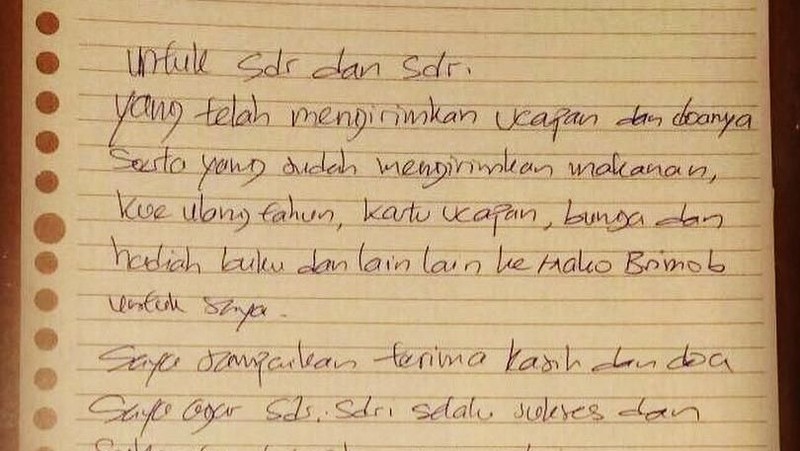 untuk Sdr dan Sdri.
yang telah mengirimkan ucapan dan doanya
Serta yang sudah mengirimkan makanan,
kue ulang tahun, kartu ucapan, bunga dan
hadiah buku dan lain lain ke Mako Brimob
untuk saya.
Saya sampaikan terima kasih dan doa
Saya agar Sdr. Sdri selalu sukses dan